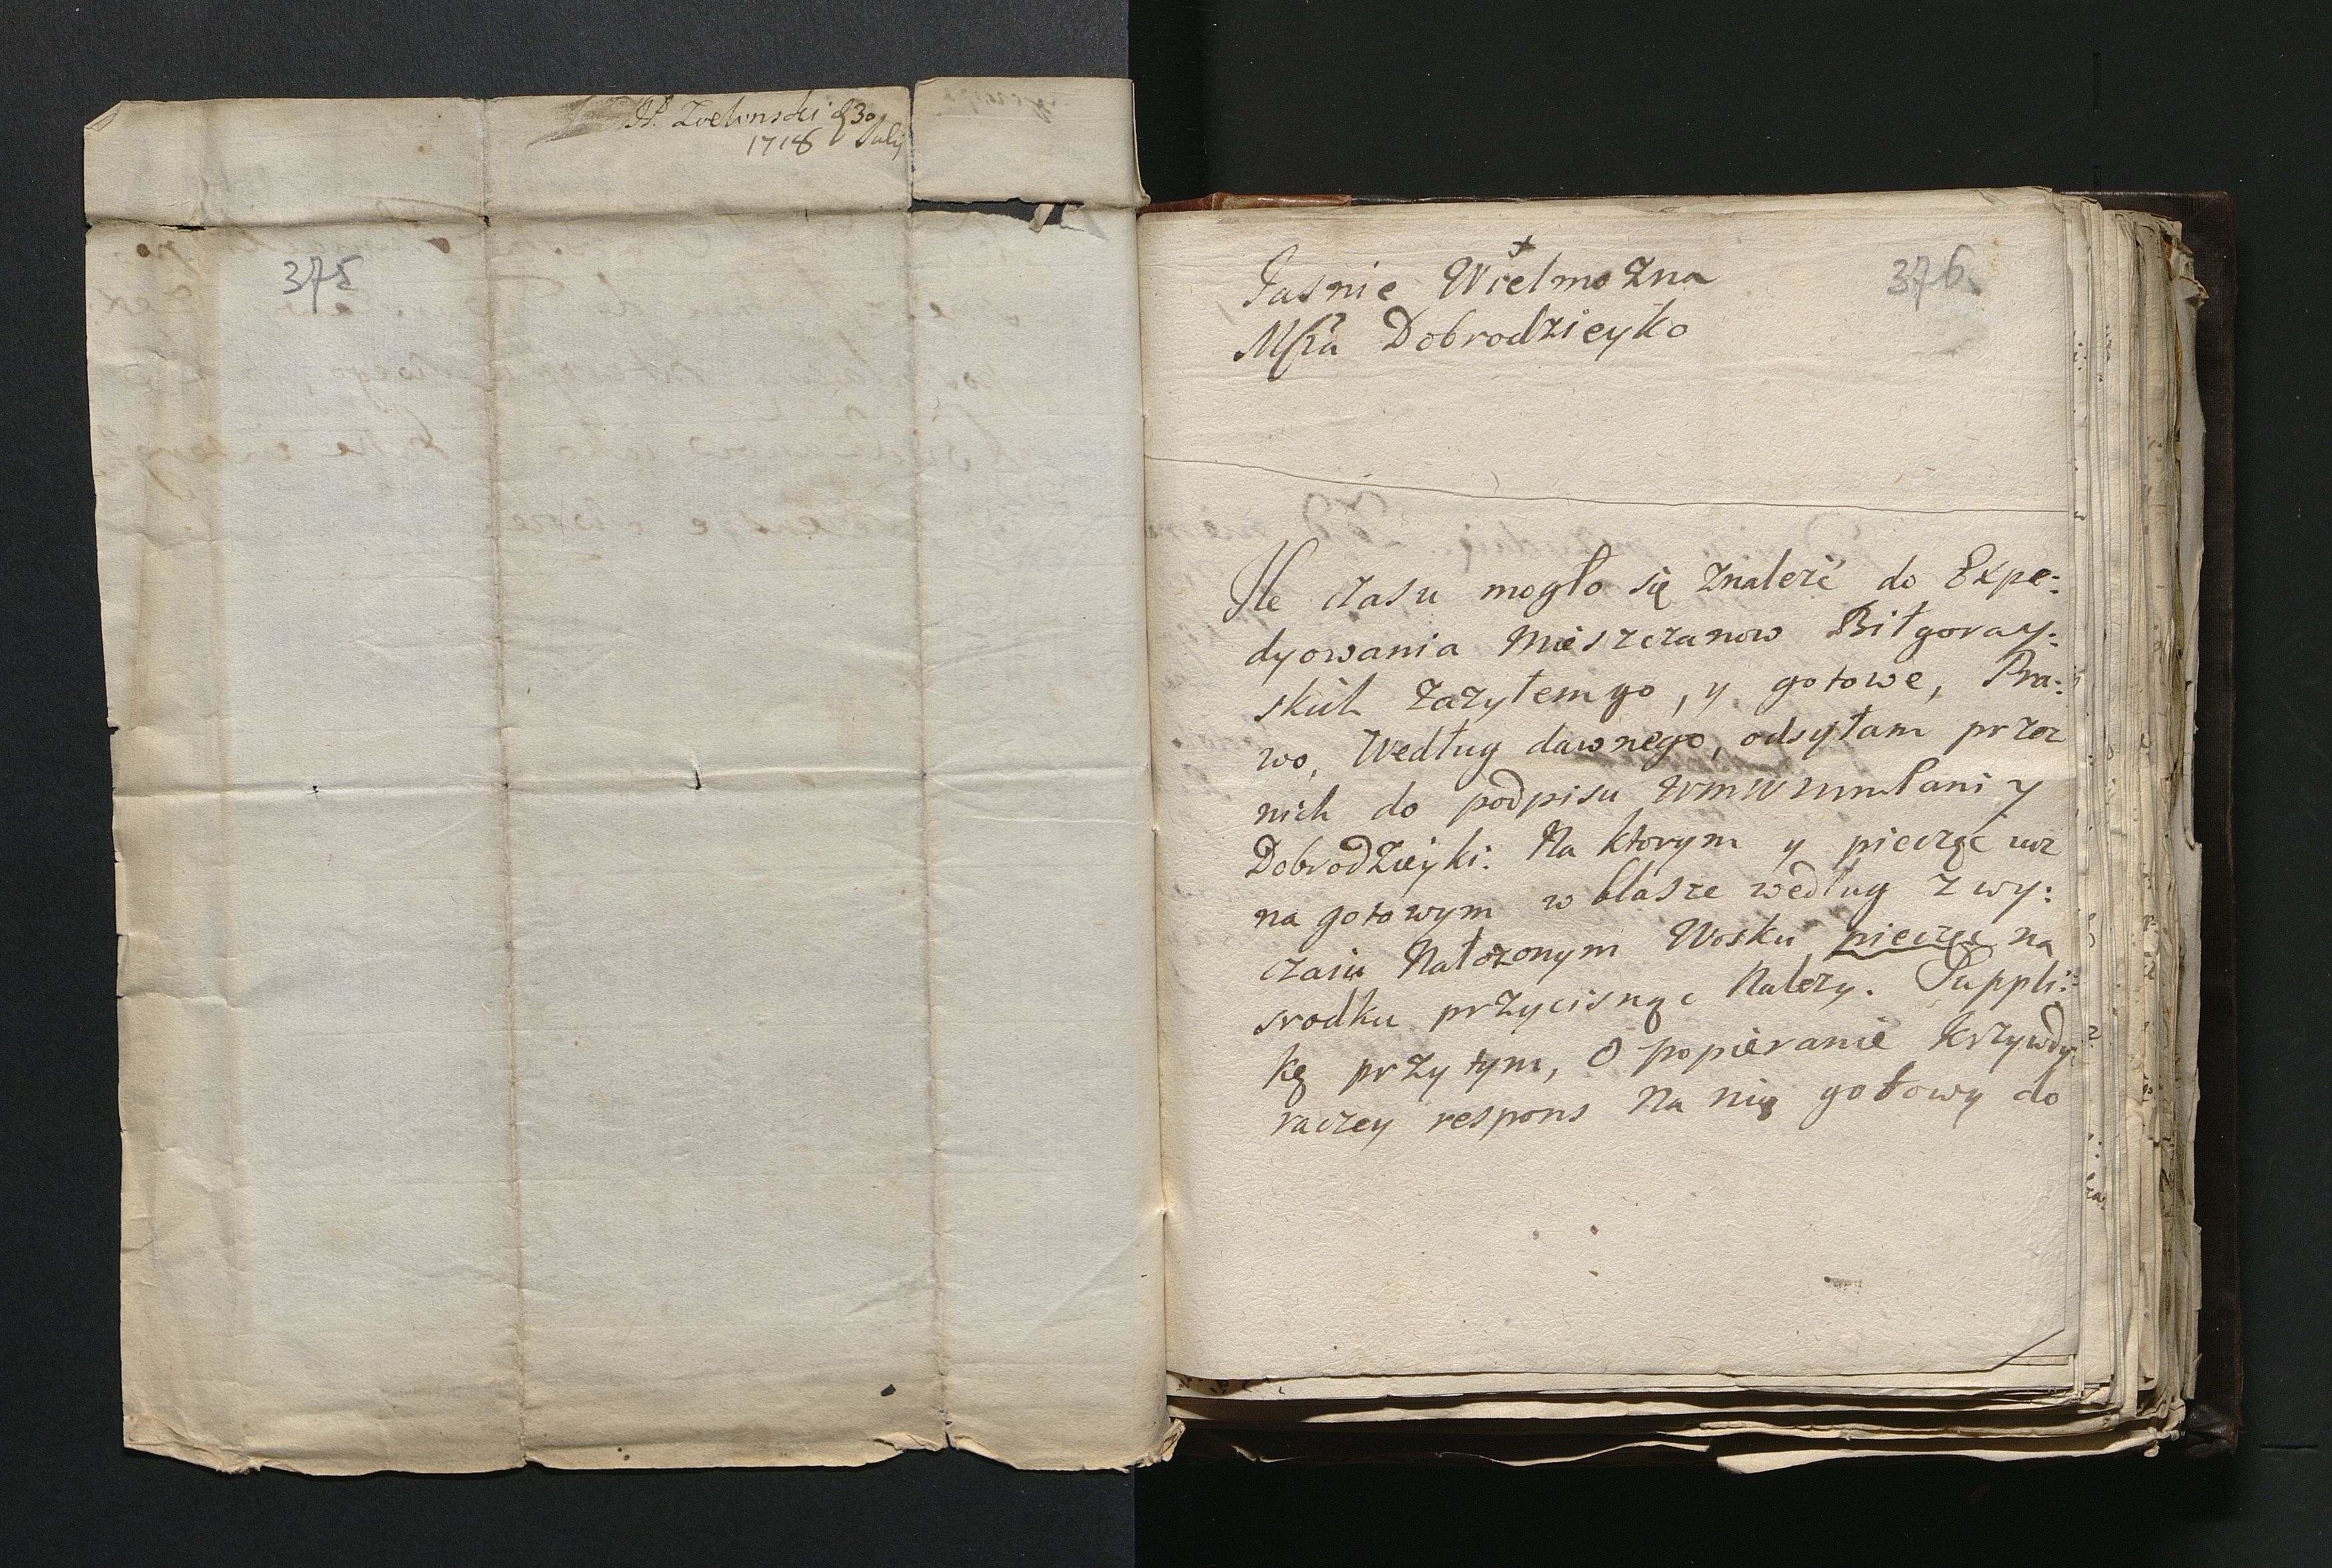 Zielonski d 30
1718 July
375
376
Jasnie Wielmozna
Mćia Dobrodzieyko
Ile czasu mogło się znaleźć do Expe:
dyowania Mieszczanow Biłgoray:
skich zazyłem go, y gotowe, Pra:
wo, Według dawnego, odsyłam przez
nich do podpisu WMW Pani y
Dobrodzieyki: Na ktorym y pieczęc
na gotowym w blasze według zwy:
czaiu Nałozonym Wosku pieczęc na
srodku przycisnąc Nalezy. Suppli:
kę przy tym, O popieranie Krzywdy
raczey respons Na nię gotowy do